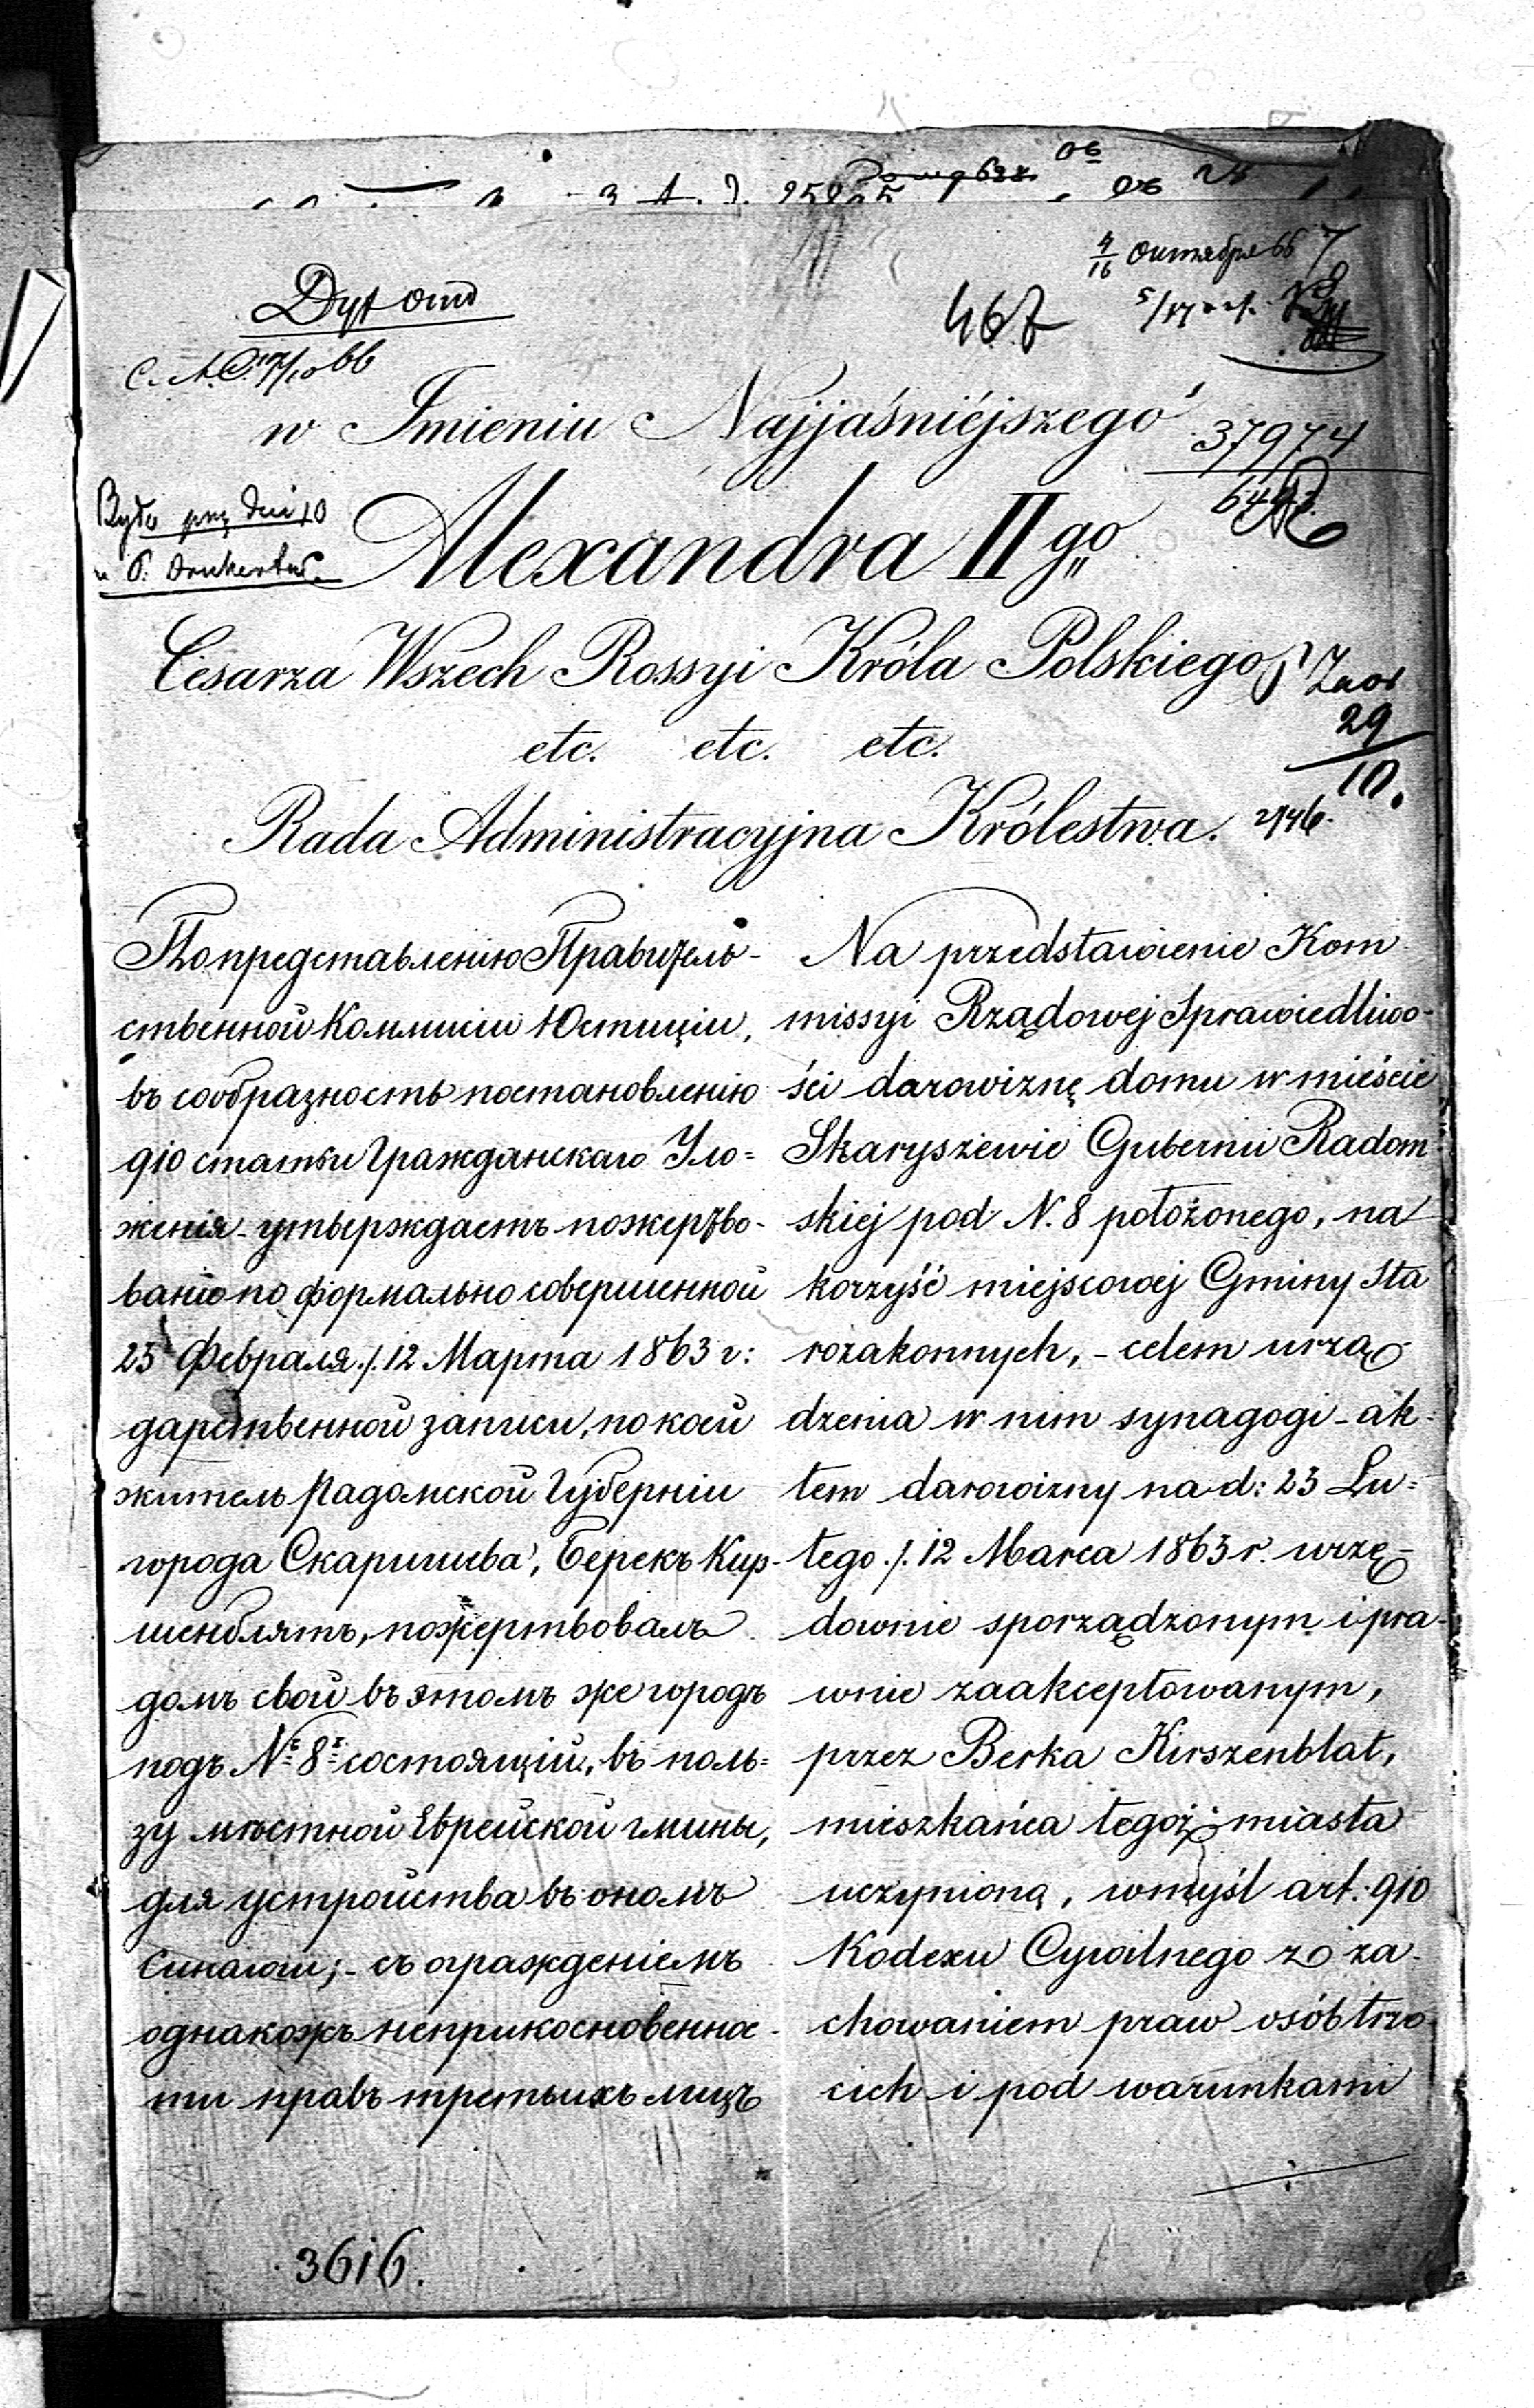 467
4/16 Октября 66
37974
w Imieniu Najjaśniéjszego
Alexandra II go
Cesarza Wszech Rossyi Króla Polskiego,
etc. etc. etc.
29
10.
Rada Administracyjna Królestwa.
По представленію Правитель-
ственной Коммисіи Юстиціи,
въ сообразность постановленію
910 статьи Гражданскаго Уло=
женія утверждаетъ пожертво-
ваніе по формально совершенной
23 Февраля /. 12 Марта 1863 г:
дарственной записи, по коей
житель Радомской Губерніи
города Скаришева, Берекъ Кир-
шенблятъ, пожертвовалъ
домъ свой въ этомъ же городѣ
подъ № 8 состоящій, въ поль=
зу мѣстной Еврейской гмины,
для устройства въ ономъ
Синагоги; - съ огражденіемъ
однакожъ неприкосновенно-
ти правъ третьихъ лицъ
Na przedstawienie Kom
missyi Rządowej Sprawiedliwo-
ści darowiznę domu w mieście
Skaryszewie Gubernii Radom
skiej pod N. 8 położonego, na
korzyść miejscowej Gminy Sta
rozakonnych, - celem urzą-
dzenia w nim synagogi - ak-
tem darowizny na d: 23 Lu=
tego /. 12 Marca 1863 r. urzę-
downie sporządzonym i pra-
wnie zaakceptowanym,
przez Berka Kirszenblat,
mieszkańca tegoż miasta
uczynioną, w myśl art: 910
Kodexu Cywilnego z za-
chowaniem praw osób trze-
cich i pod warunkami
3616.